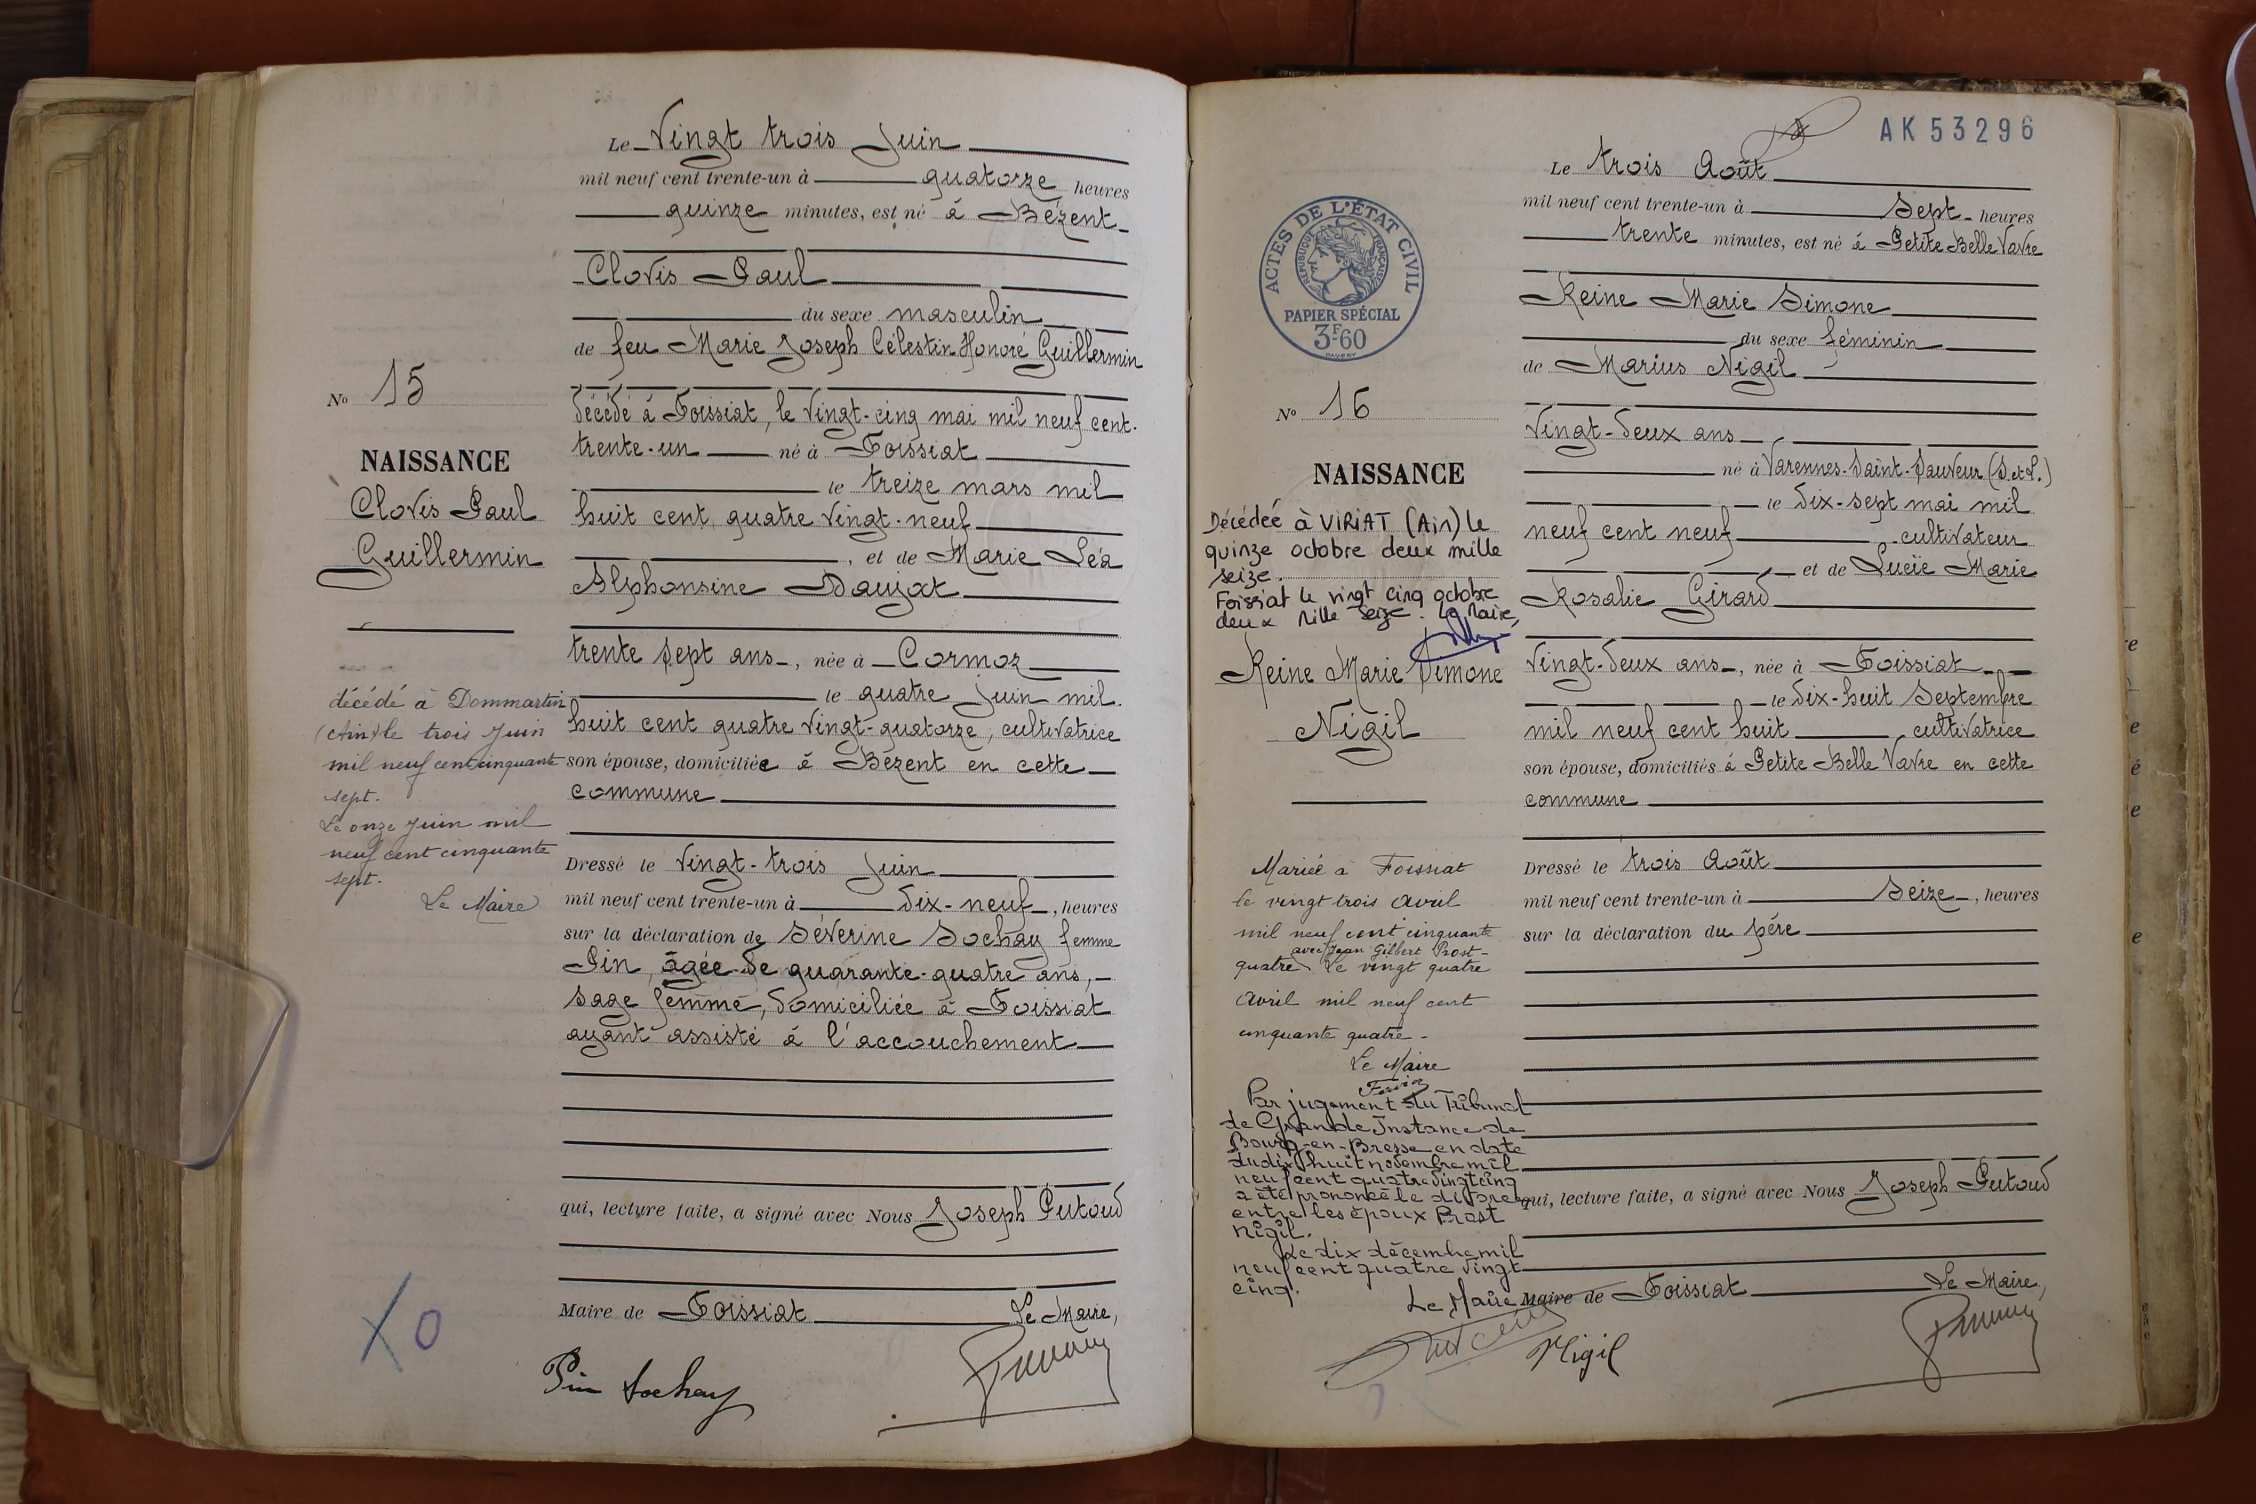 Le Vingt trois Juin
mil neuf cent trente-un à quatorze heures
quinze minutes, est né à Bézent
Clovis Paul
du sexe masculin
de feu Marie Joseph Célestin Honoré Guillermin
décédé à Foissiat, le vingt-cinq mai mil neuf cent
trente-un né à Foissiat
le treize mars mil
huit cent quatre vingt-neuf
, et de Marie Léa
Alphonsine Daujat
trente sept ans, née à Cormoz
le quatre Juin mil
huit cent quatre vingt-quatorze, cultivatrice
son épouse, domiciliée à Bézent en cette
commune
Dressé le vingt-trois Juin
mil neuf cent trente-un à dix-neuf, heures
sur la déclaration de Séverine Sochay femme
Pin, âgée de quarante-quatre ans,
sage femme, domiciliée à Foissiat
ayant assisté à l'accouchement
qui, lecture faite, a signé avec Nous Joseph Putoud
Maire de Foissiat Le Maire,
Pin Sochay
No 15
NAISSANCE
Clovis Paul
Guillermin
décédé à Dommartin
(Ain) le trois Juin
mil neuf cent cinquante
sept.
Le onze Juin mil
neuf cent cinquante
sept.
Le Maire
X O
AK 53296
Le trois Août
mil neuf cent trente-un à Sept heures
trente minutes, est né à Petite Belle Vavre
Reine Marie Simone
du sexe féminin
de Marius Nigil
Vingt-deux ans
né à Varennes-Saint-Sauveur (S.et L.)
le dix-sept mai mil
neuf cent neuf cultivateur
et de Lucie Marie
Rosalie Girard
Vingt-deux ans, née à Foissiat
le dix-huit Septembre
mil neuf cent huit cultivatrice
son épouse, domiciliés à Petite Belle Vavre en cette
commune
Dressé le trois Août
mil neuf cent trente-un à Seize, heures
sur la déclaration du père
qui, lecture faite, a signé avec Nous Joseph Putoud
Maire de Foissiat Le Maire,
Nigil
ACTES DE L'ÉTAT CIVIL
RÉPUBLIQUE FRANÇAISE
PAPIER SPÉCIAL
3F60
No 16
NAISSANCE
Décédée à VIRIAT (Ain) le
quinze octobre deux mille
seize.
Foissiat le vingt cinq octobre
deux mille seize. Le Maire,
Reine Marie Simone
Nigil
Mariée à Foissiat
le vingt trois Avril
mil neuf cent cinquante
avec Jean Gilbert Prost-
quatre Le vingt quatre
Avril mil neuf cent
cinquante quatre -
Le Maire
Par jugement du Tribunal
de Grande Instance de
Bourg-en-Bresse en date
du dix huit novembre mil
neuf cent quatre vingt cinq
a été prononcé le divorce
entre les époux Prost
Nigil.
Le dix décembre mil
neuf cent quatre vingt
cinq.
Le Maire